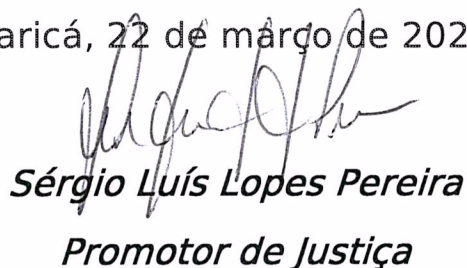 aricá, 22 de março de 202
Sérgio Luís Lopes Pereira
Promotor de Justiça